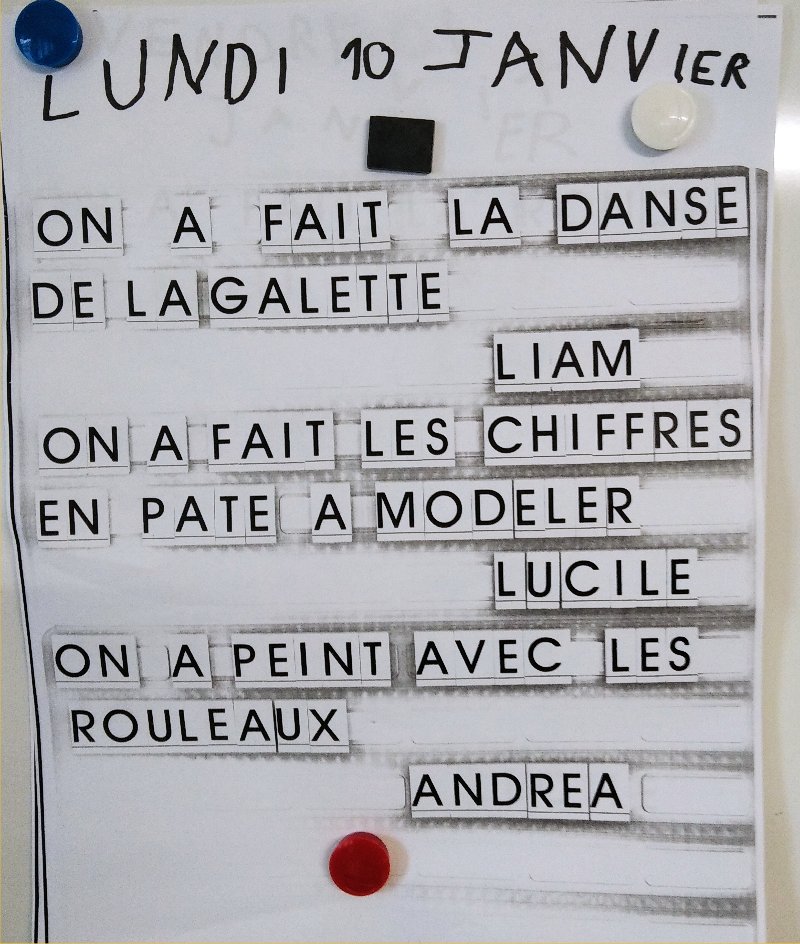 LUNDI 10 JANVIER
ON A FAIT LA DANSE
DE LA GALETTE
LIAM
ON A FAIT LES CHIFFRES
EN PATE A MODELER
LUCILE
ON A PEINT AVEC LES
ROULEAUX
ANDREA